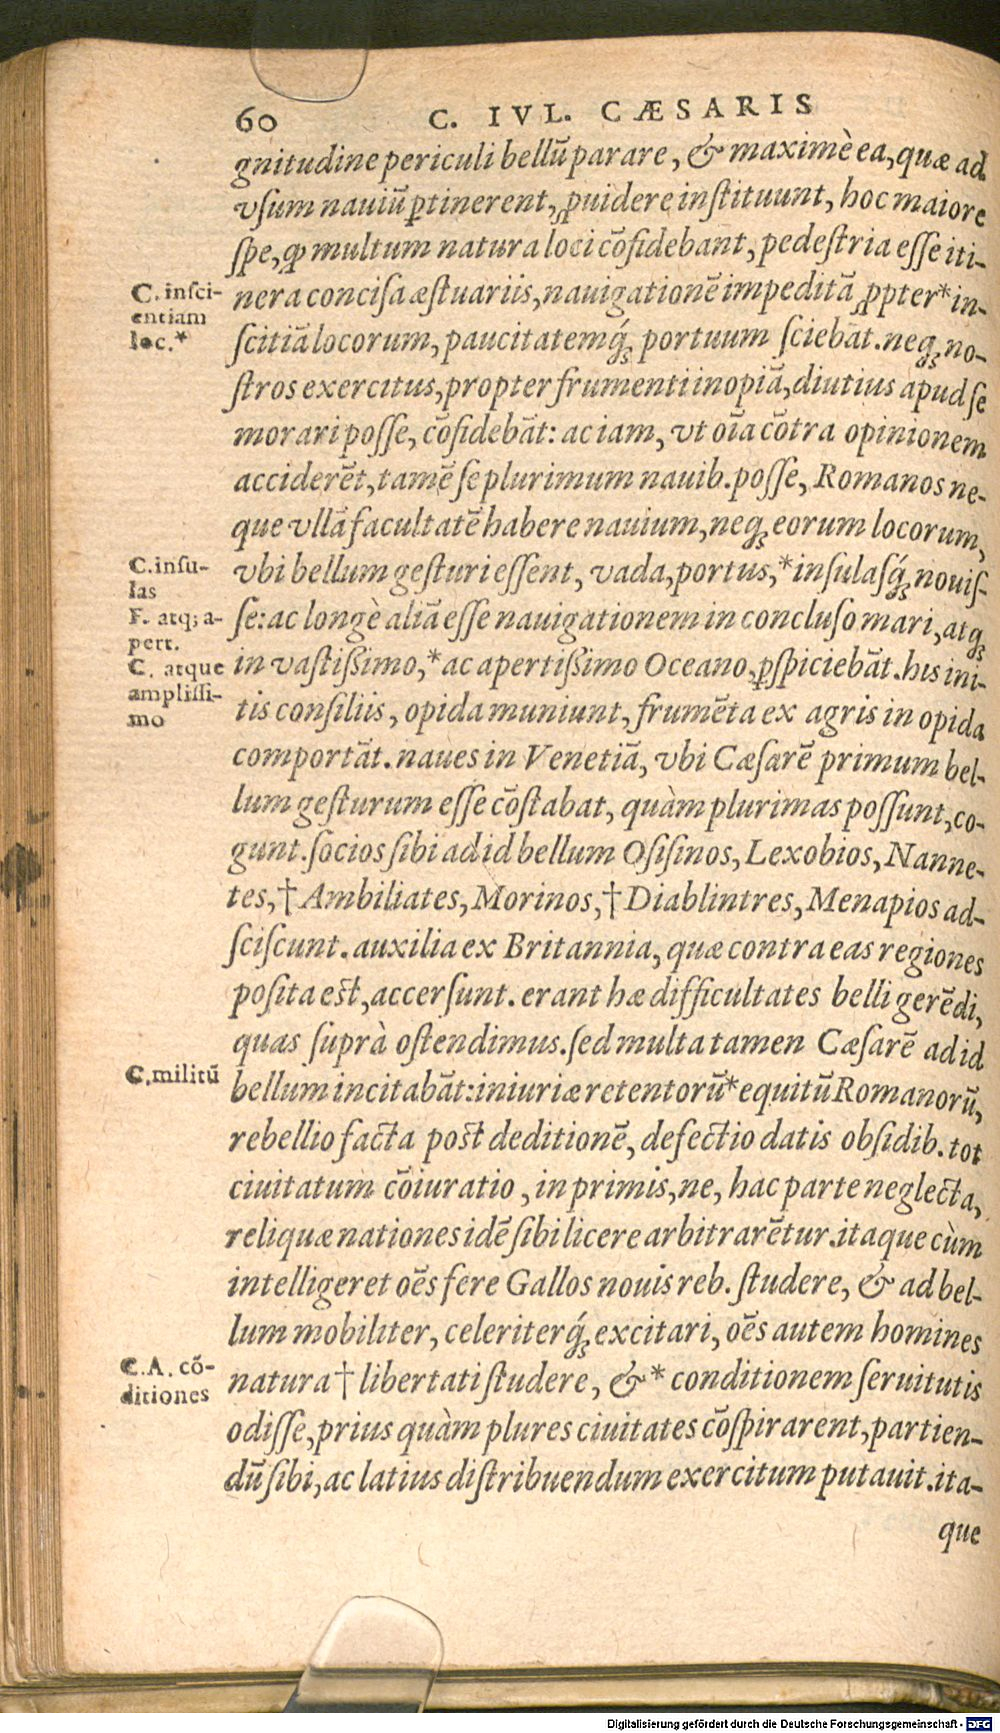 60 C. IVL. CÆSARIS
gnitudine periculi bellũ parare, & maximè ea, quæ ad
vſum nauiũ ꝑtinerent, ꝓuidere inſtituunt, hoc maiore
ſpe, ꝙ multum natura loci cõfidebant, pedeſtria eſſe iti-
C. inſci-
entiam
loc.*
nera conciſa æſtuariis, nauigationẽ impeditã ꝓpter* in-
ſcitiã locorum, paucitatemq́ꝫ portuum ſciebãt. neqꝫ no-
ſtros exercitus, propter frumenti inopiã, diutius apud ſe
morari poſſe, cõfidebãt: ac iam, vt oĩa cõtra opinionem
acciderẽt, tamẽ ſe plurimum nauib. poſſe, Romanos ne-
que vllã facultatẽ habere nauium, neqꝫ eorum locorum,
C. inſu-
las
vbi bellum geſturi eſſent, vada, portus,* inſulaſq́ꝫ nouiſ-
F. atq; a-
pert.
ſe: ac longè aliã eſſe nauigationem in concluſo mari, atqꝫ
C. atque
ampliſſi-
mo
in vaſtißimo,* ac apertißimo Oceano, ꝑſpiciebãt. his ini-
tis conſiliis, opida muniunt, frumẽta ex agris in opida
comportãt. naues in Venetiã, vbi Cæſarẽ primum bel-
lum geſturum eſſe cõſtabat, quàm plurimas poſſunt, co-
gunt. ſocios ſibi ad id bellum Oſiſinos, Lexobios, Nanne-
tes, † Ambiliates, Morinos, † Diablintres, Menapios ad-
ſciſcunt. auxilia ex Britannia, quæ contra eas regiones
poſita eſt, accerſunt. erant hæ difficultates belli gerẽdi,
quas ſuprà oſtendimus. ſed multa tamen Cæſarẽ ad id
C. militũ
bellum incitabãt: iniuriæ retentorũ* equitũ Romanorũ,
rebellio facta poſt deditionẽ, defectio datis obſidib. tot
ciuitatum cõiuratio, in primis, ne, hac parte neglecta,
reliquæ nationes idẽ ſibi licere arbitrarẽtur. itaque cùm
intelligeret oẽs fere Gallos nouis reb. ſtudere, & ad bel-
lum mobiliter, celeriterq́ꝫ excitari, oẽs autem homines
C. A. cõ-
ditiones
natura † libertati ſtudere, & * conditionem ſeruitutis
odiſſe, prius quàm plures ciuitates cõſpirarent, partien-
dũ ſibi, ac latius diſtribuendum exercitum putauit. ita-
que
Digitalisierung gefördert durch die Deutsche Forschungsgemeinschaft - DFG